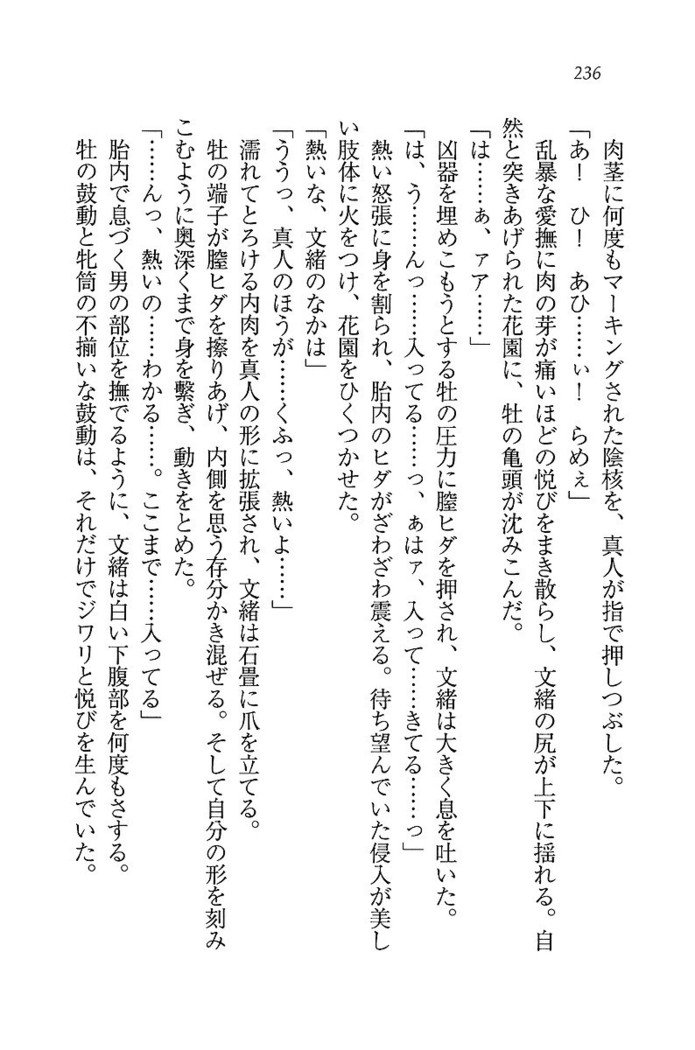 236
肉茎に何度もマーキングされた陰核を、真人が指で押しつぶした。
「あ！　ひ！　あひ……ぃ！　らめぇ」
乱暴な愛撫に肉の芽が痛いほどの悦びをまき散らし、文緒の尻が上下に揺れる。自
然と突きあげられた花園に、牡の亀頭が沈みこんだ。
「は……ぁ、ァア……」
凶器を埋めこもうとする牡の圧力に膣ヒダを押され、文緒は大きく息を吐いた。
「は、う……んっ……入ってる……っ、ぁはァ、入って……きてる……っ」
熱い怒張に身を割られ、胎内のヒダがざわざわ震える。待ち望んでいた侵入が美し
い肢体に火をつけ、花園をひくつかせた。
「熱いな、文緒のなかは」
「ううっ、真人のほうが……くふっ、熱いよ……」
濡れてとろける内肉を真人の形に拡張され、文緒は石畳に爪を立てる。
牡の端子が膣ヒダを擦りあげ、内側を思う存分かき混ぜる。そして自分の形を刻み
こむように奥深くまで身を繋ぎ、動きをとめた。
「……んっ、熱いの……わかる……。ここまで……入ってる」
胎内で息づく男の部位を撫でるように、文緒は白い下腹部を何度もさする。
牡の鼓動と牝筒の不揃いな鼓動は、それだけでジワリと悦びを生んでいた。